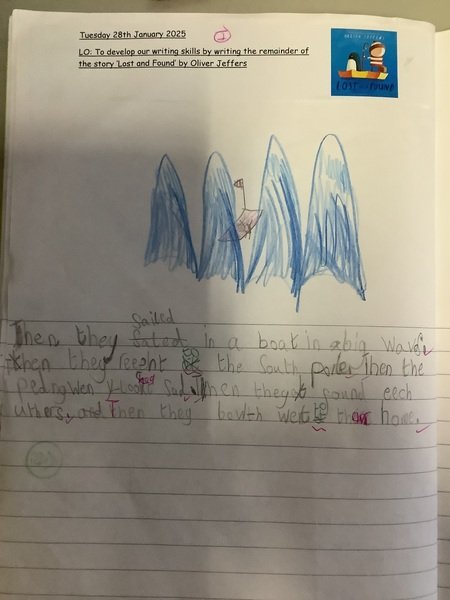 Tuesday 28th January 2025
I
LO: To develop our writing skills by writing the remainder of
the story 'Lost and Found' by Oliver Jeffers
OLIVER JEFFERS
LOST AND FOUND
Sailed
Then they sated in a boat in a big wave.
then they at the South poller Then the
pedngwen sad. Then they found eech
uthers. and Then they bowth went to their home.